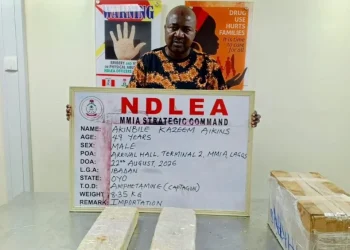 WARNING
DRUG
USE
HURTS
FAMILIES
NDLEA
MMIA STRATEGIC COMMAND
NAME: AKINBILE KAZEEM AIKINS
AGE: 49 YEARS
SEX: MALE
POA: ARRIVAL HALL, TERMINAL 2, MMIA, LAGOS
DOA: 22ND AUGUST 2026
L.G.A: IBADAN
STATE: OYO
T.O.D: AMPHETAMINE (CAPTAGON)
WEIGHT: 8.35 KG
REMARK: IMPORTATION